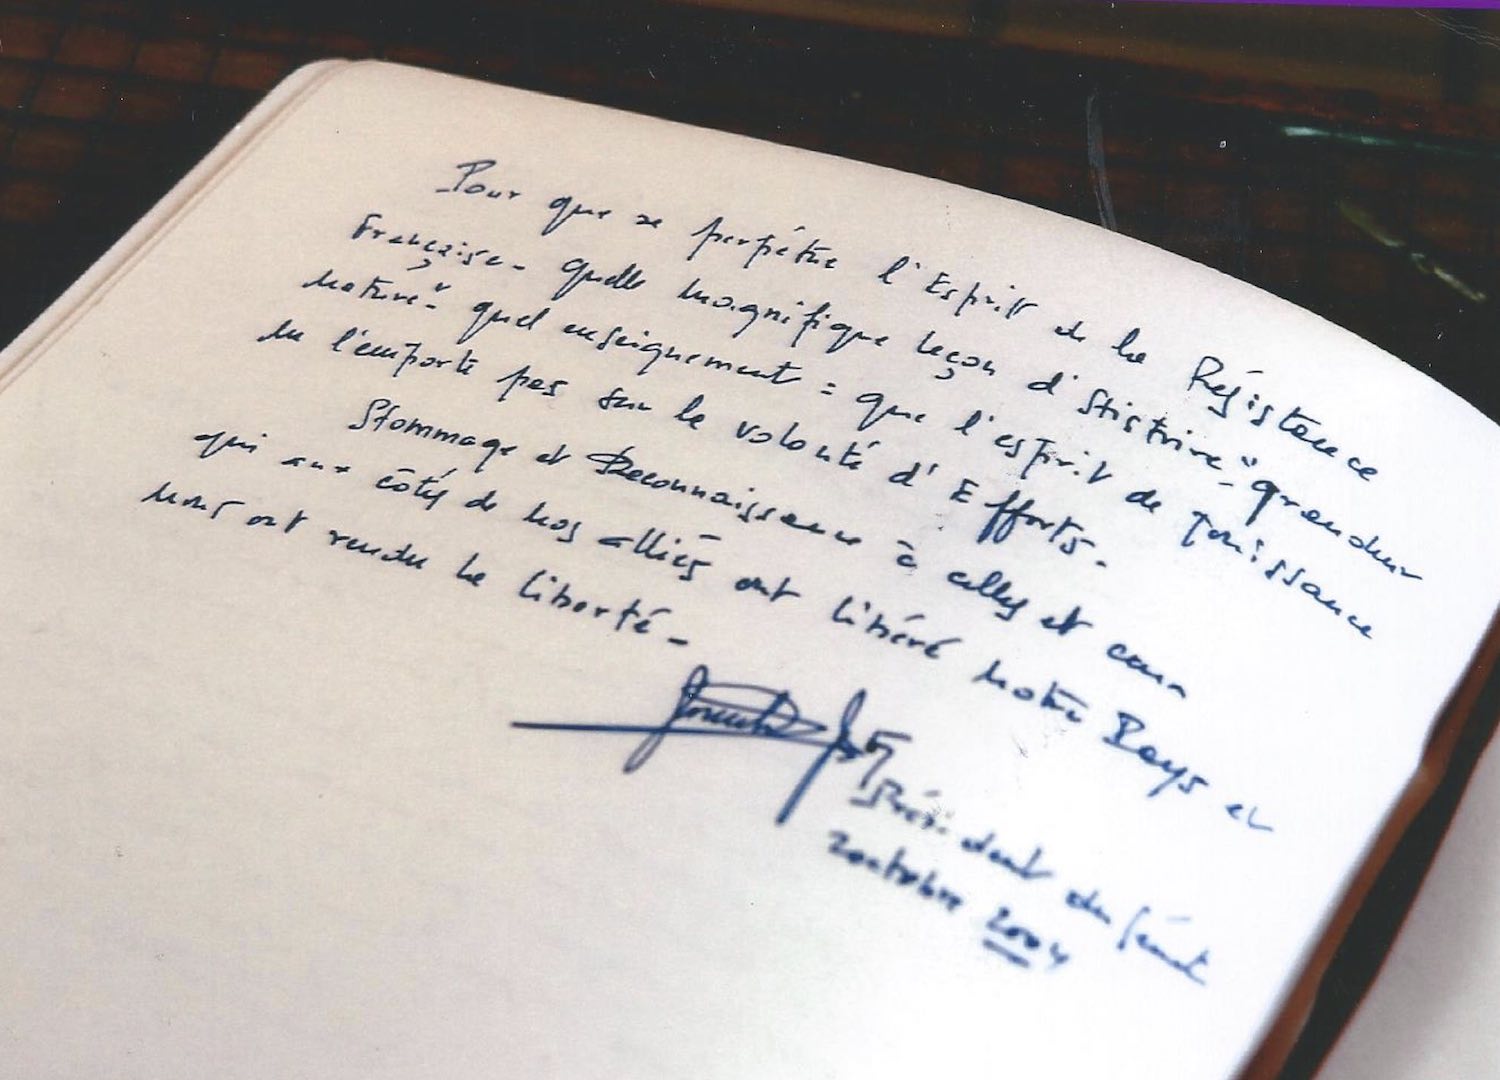 Pour que se perpétue l'Esprit de la Résistance
Française - quelle magnifique leçon d'Histoire - "grandeur
nature" quel enseignement : que l'esprit de Jouissance
ne l'emporte pas sur la volonté d'Efforts -
Hommage et Reconnaissance à celles et ceux
qui aux côtés de nos alliés ont libéré notre Pays et
nous ont rendu la liberté -
Président du Sénat
2 octobre 2004